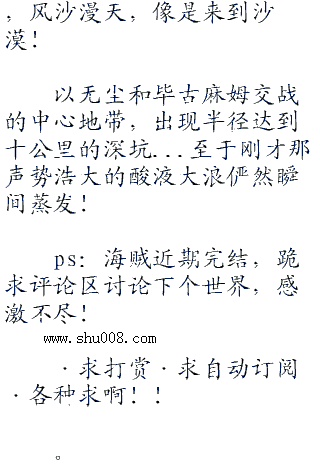 ，风沙漫天，像是来到沙
漠！
以无尘和毕古麻姆交战
的中心地带，出现半径达到
十公里的深坑...至于刚才那
声势浩大的酸液大浪俨然瞬
间蒸发！
ps：海贼近期完结，跪
求评论区讨论下个世界，感
激不尽！
www.shu008.com
·求打赏·求自动订阅
·各种求啊！！
。